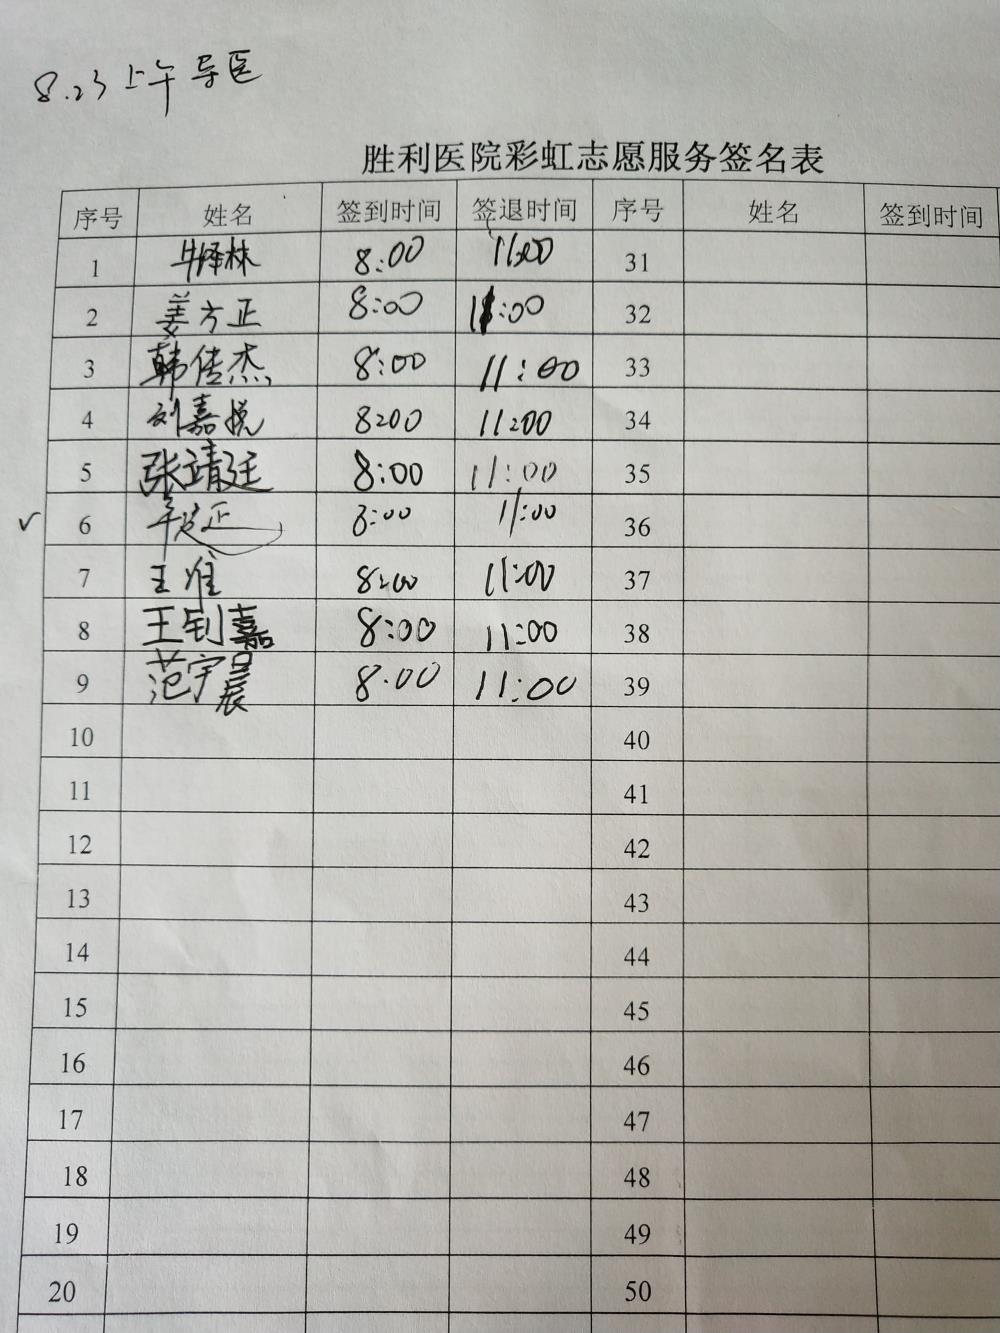 8.23 上午 导医
胜利医院彩虹志愿服务签名表
序号 姓名 签到时间 签退时间 序号 姓名 签到时间
1 牛泽林 8:00 11:00 31
2 姜方正 8:00 11:00 32
3 韩传杰 8:00 11:00 33
4 刘嘉悦 8:00 11:00 34
5 张靖廷 8:00 11:00 35
√ 6 8:00 11:00 36
7 王准 8:00 11:00 37
8 王钊嘉 8:00 11:00 38
9 范宇晨 8:00 11:00 39
10 40
11 41
12 42
13 43
14 44
15 45
16 46
17 47
18 48
19 49
20 50